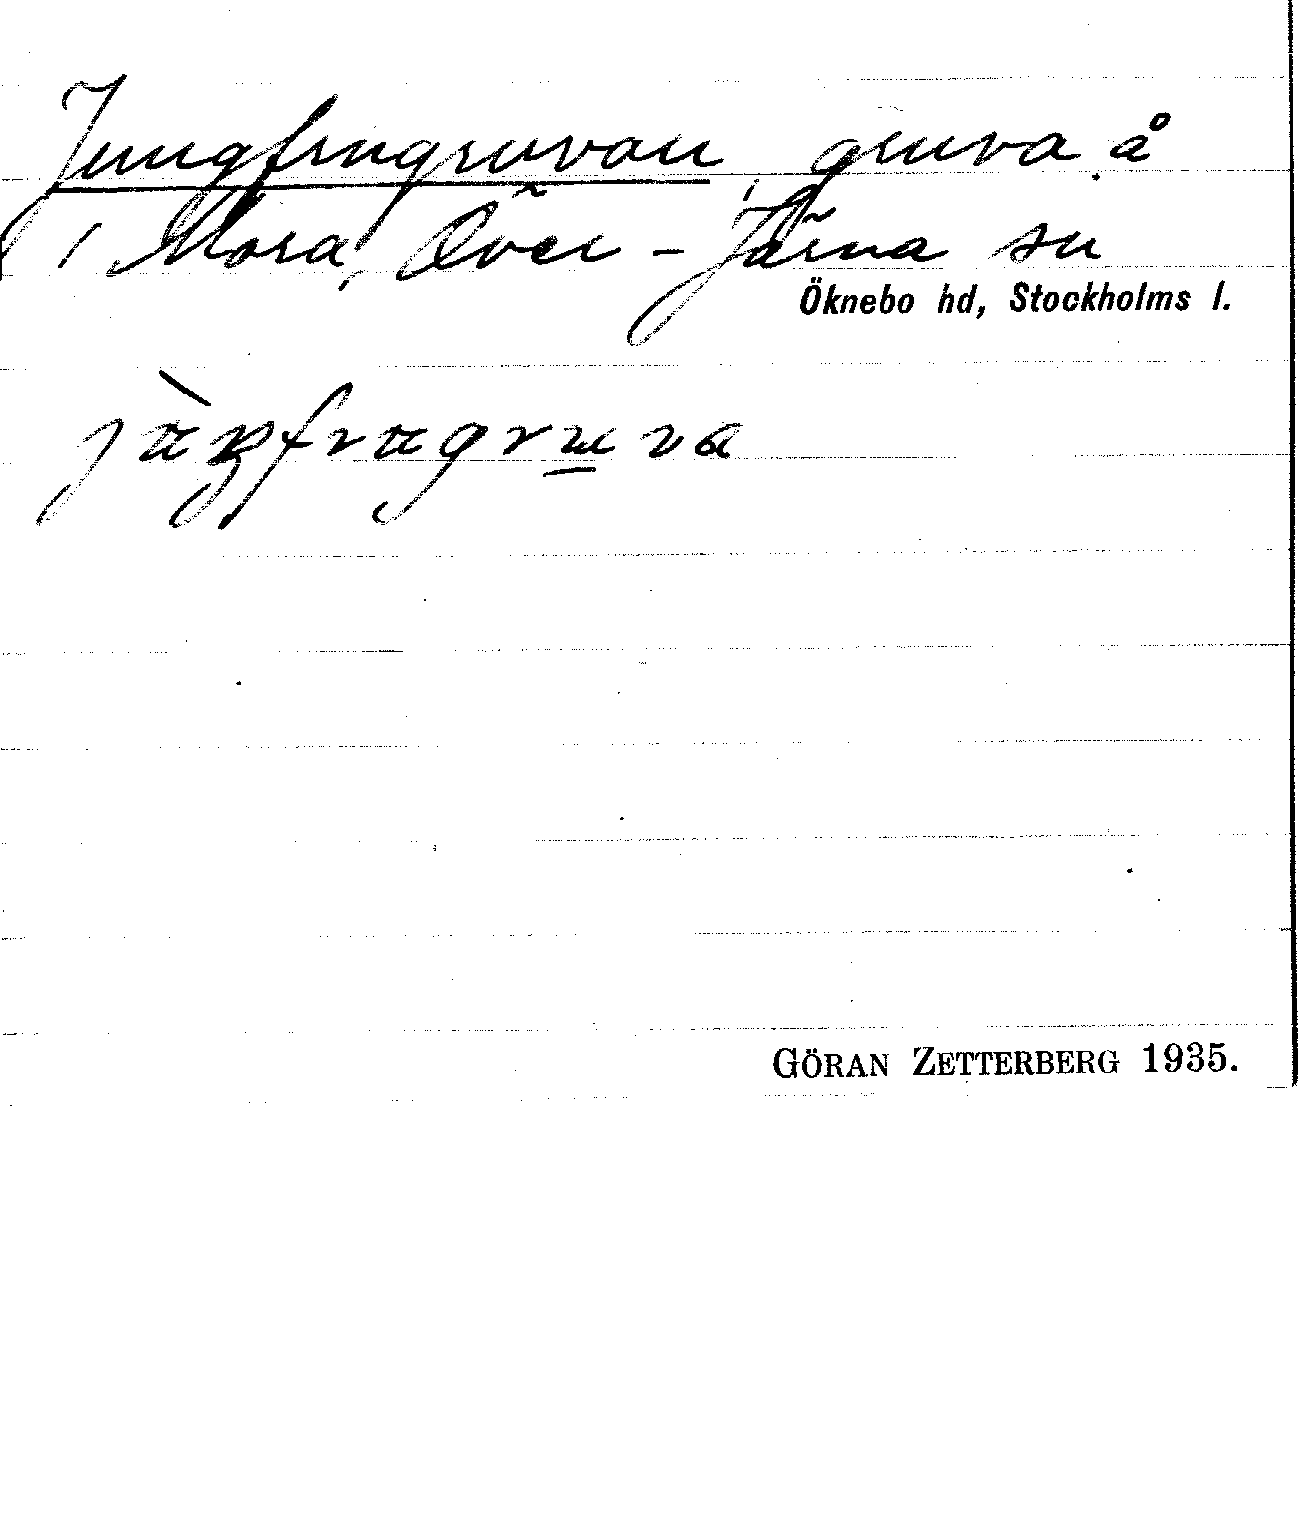 Jungfrugruvan, gruva å
1 Mora, Över-Järna sn
Öknebo hd, Stockholms l.
jùŋfrugruva
GÖRAN ZETTERBERG 1935.